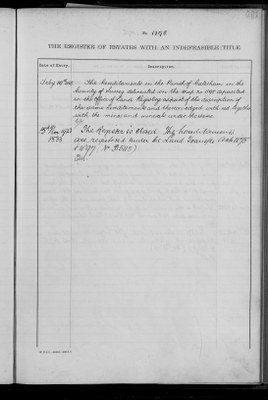 No. 1198
THE REGISTER OF ESTATES WITH AN INDEFEASIBLE TITLE.
Date of Entry. Description.
The hereditaments in the Parish of Caterham in the
County of Surrey delineated on the map No 1198 deposited
in the Office of Land Registry as part of the description of
the same hereditaments and thereon edged with red together
with the mines and minerals under the same
The Register is closed. The hereditaments
are registered under the Land Transfer Acts 1875
& 1897